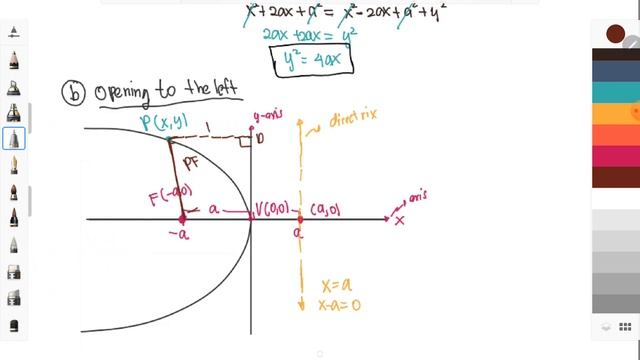 x² + 2ax + a² = x² - 2ax + a² + y²
2ax + 2ax = y²
y² = 4ax
b opening to the left
P(x,y)
y-axis
directrix
D
PF
F(-a,0)
a
V(0,0)
(a,0)
axis
-a
a
x
x=a
x-a=0